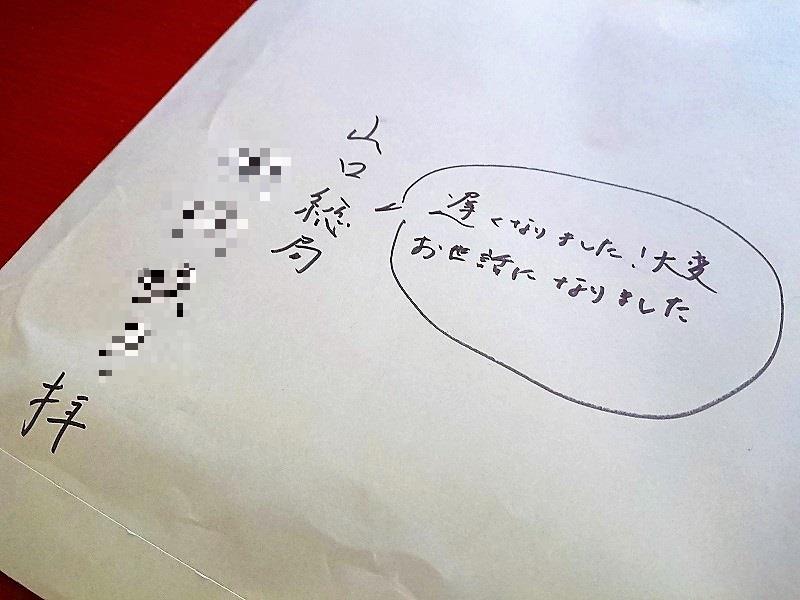 山口総局
拝
遅くなりました！大変
お世話になりました